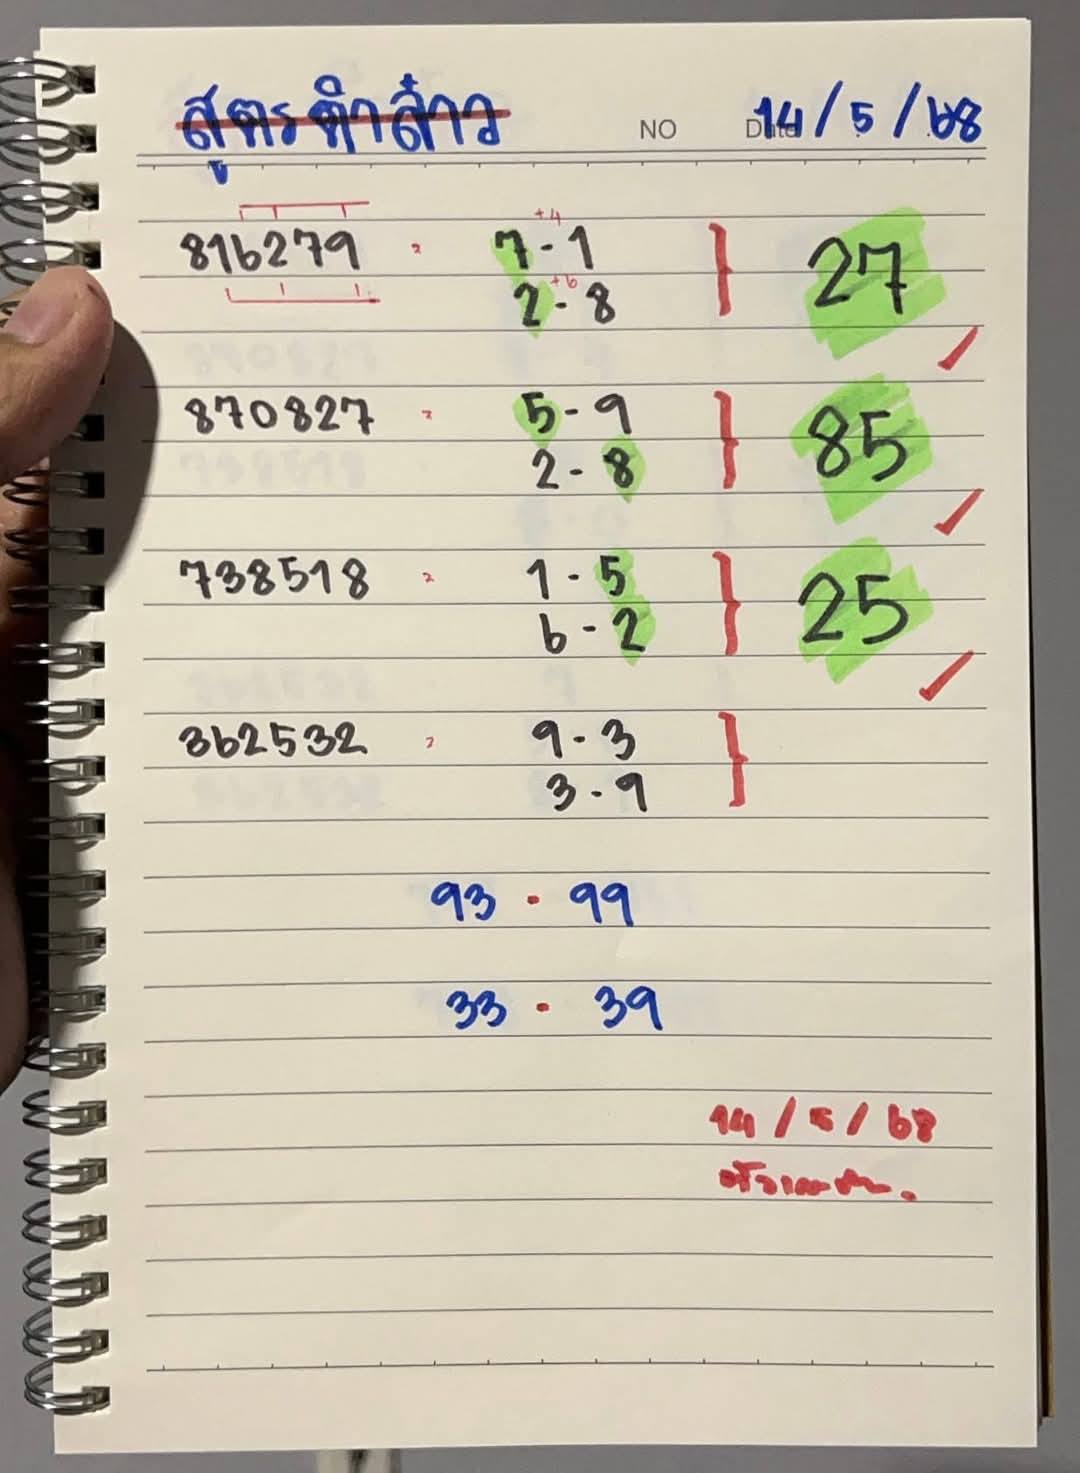 สูตรทำลาว NO Date 14/5/68
816279 = +4 7-1 } 27
+6 2-8
870827 = 5-9 } 85
2-8
738518 = 1-5 } 25
6-2
362532 = 9-3 }
3-9
93 - 99
33 - 39
14/5/68